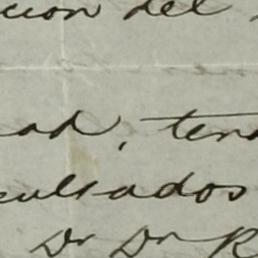 cion del
ad, ten
cultados
Dr Dn R